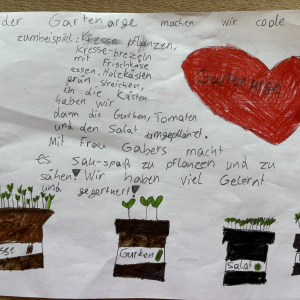 der Gartenarge machen wir coole
zumbeispiel: Kresse pflanzen,
kresse-brezeln
mit Frischkäse
essen, Holzkästen
grün streichen,
in die Kästen
haben wir
dann die Gurken, Tomaten
und den Salat umgepflanzt.
Mit Frau Gabers macht
es sau-spaß zu pflanzen und zu
sähen! Wir haben viel Gelernt
und gegertnert!
Gartenarge
sse
Gurken
Salat